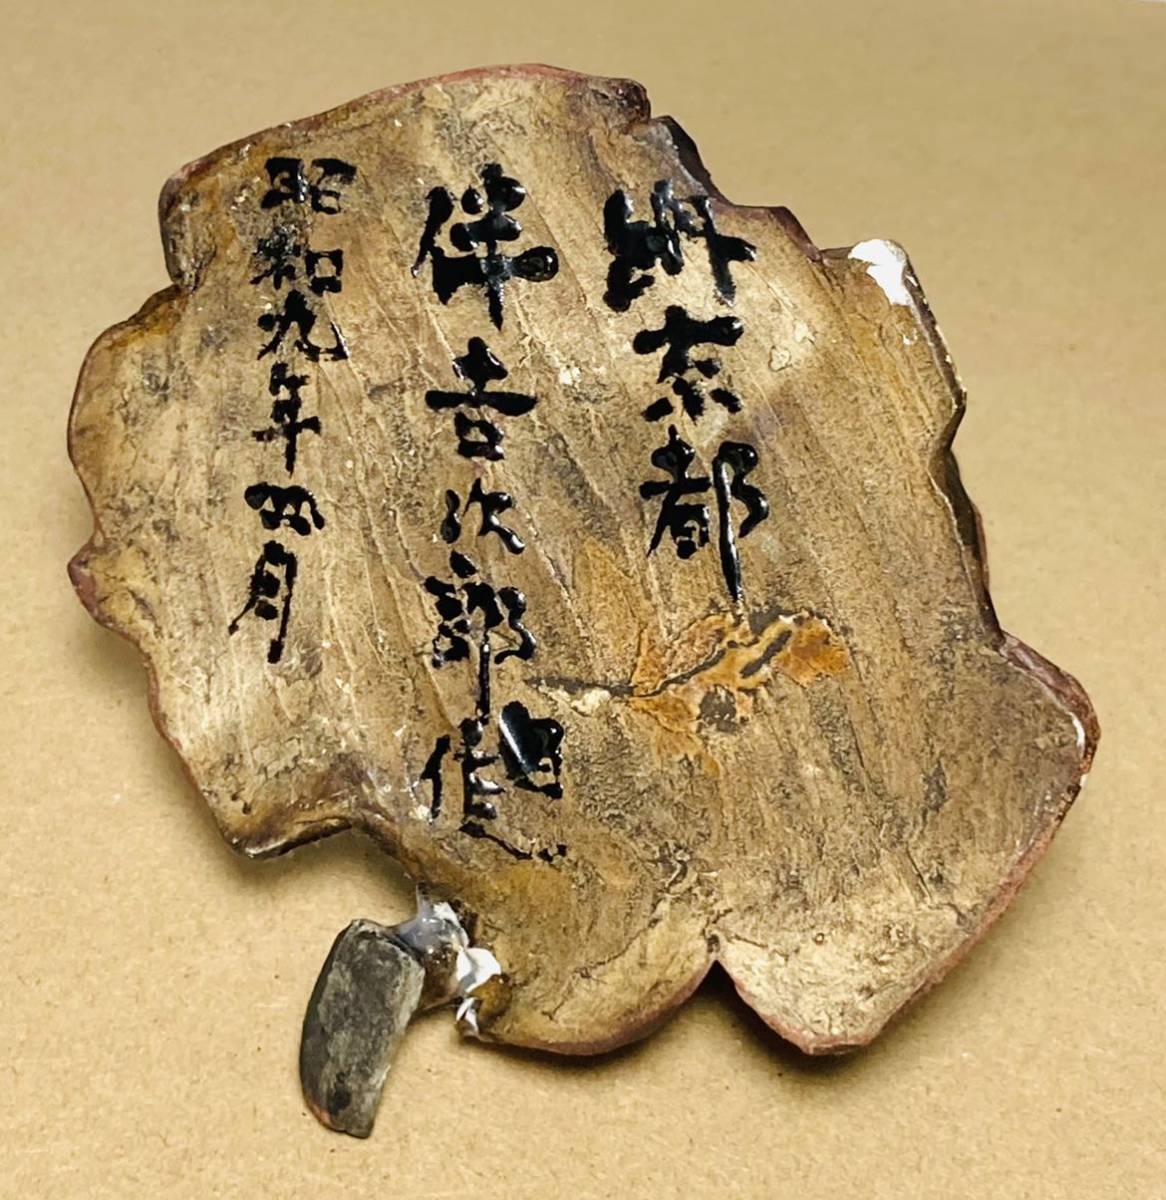 京都
伴吉次郎作
昭和九年四月